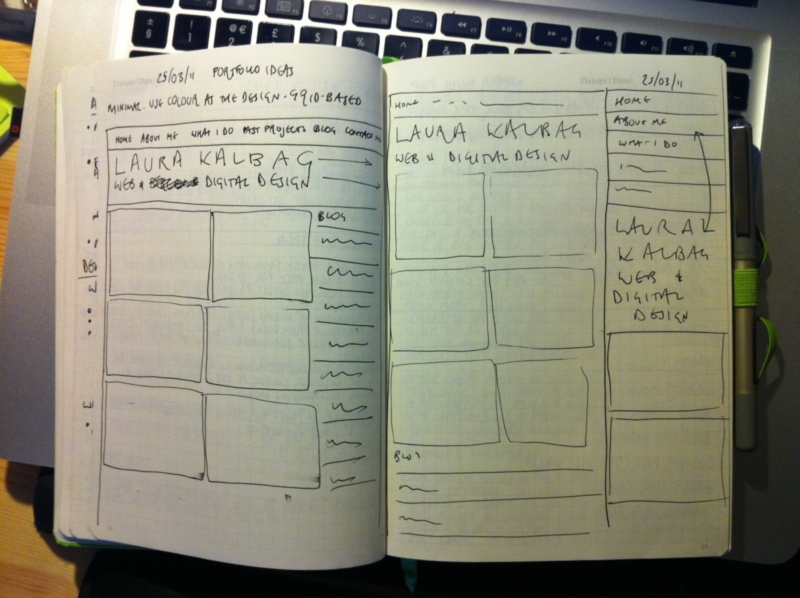 25/03/11 PORTFOLIO IDEAS
MINIMAL. USE COLOUR AS THE DESIGN. GRID-BASED
HOME ABOUT ME WHAT I DO PAST PROJECTS BLOG CONTACT ME
LAURA KALBAG
WEB & DIGITAL DESIGN
BLOG
25/03/11
HOME
LAURA KALBAG
WEB & DIGITAL DESIGN
BLOG
HOME
ABOUT ME
WHAT I DO
LAURA
KALBAG
WEB &
DIGITAL
DESIGN